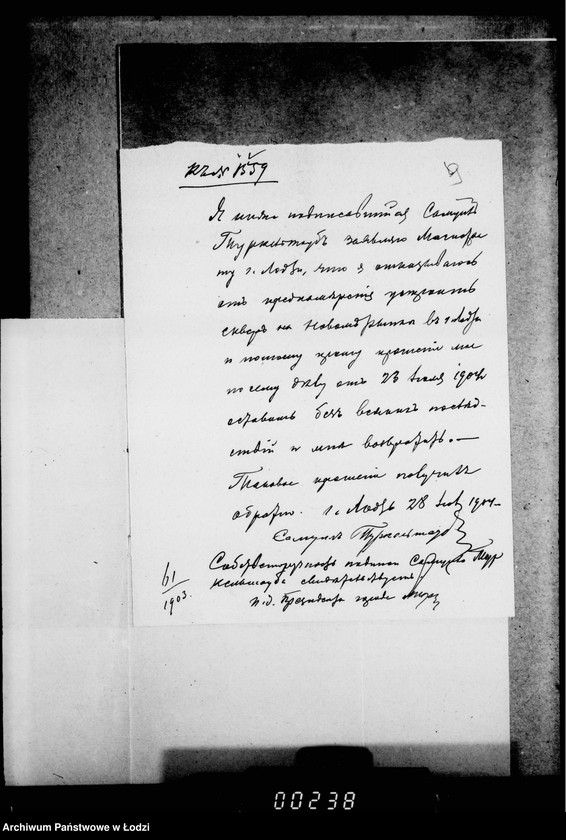 къ № 1559
9
Я ниже подписавшійся Самуилъ
Туркельтаубъ заявляю Магистра
ту г. Лодзи, что я отказываюсь
отъ предположенія устроить
скверъ на Новомъ Рынкѣ въ г. Лодзи
и потому прошу прошеніе мое
по сему дѣлу отъ 23 Іюля 1904
оставить безъ всякихъ послѣд-
ствій и мнѣ возвратить. —
Таковое прошеніе получилъ
обратно. г. Лодзь 28 1904
Самуилъ Туркельтаубъ
Собственноручность подписи Самуила Тур
кельтауба свидѣтельствуетъ
И. д. Президента города
61
1903.
00238
Archiwum Państwowe w Łodzi